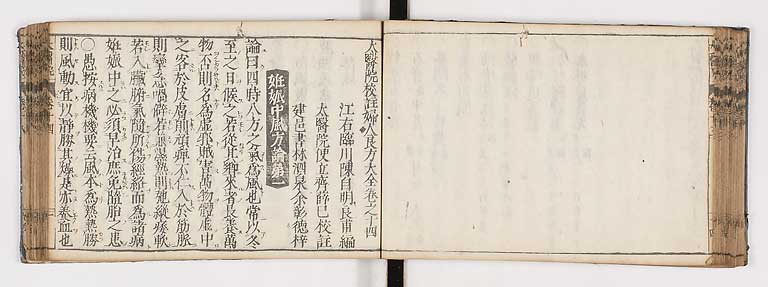 太醫院校註婦人良方大全卷之十四
江右臨川陳自明良甫編
太醫院使立齋薛已校註
建邑書林泗泉余彰德梓
妊娠中風方論第一
論曰四時八方之氣為風也常以冬
至之日候之若從其鄉來者長養萬
物不則名為虛風賊害萬物體虛中
之客於皮膚則頑痺不仁入於筋脈
則攣急喎僻若兼濕熱則弛縱痿軟
若入臟腑氣隨所傷經絡而為諸病
妊娠中之必須早治庶免隨胎之患
○愚按病機機要云風本為熱熱勝
則風動宜以靜勝其燥是亦養血也